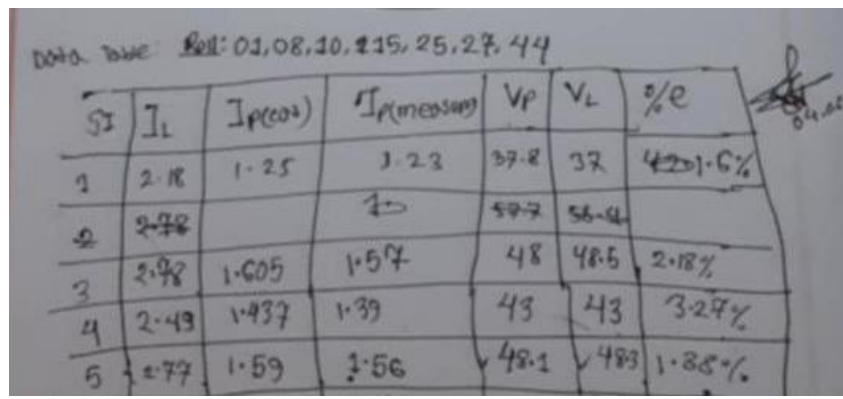 Data Table: Roll: 01,08,10,115,25,27,44
SI I_L I_p(cal) I_p(measure) V_p V_L %e
1 2.18 1.25 1.23 37.8 37 1.6%
2 2.78 57.7
3 2.78 1.605 1.57 48 48.5 2.18%
4 2.49 1.437 1.39 43 43 3.27%
5 2.77 1.59 1.56 48.1 48.3 1.88%